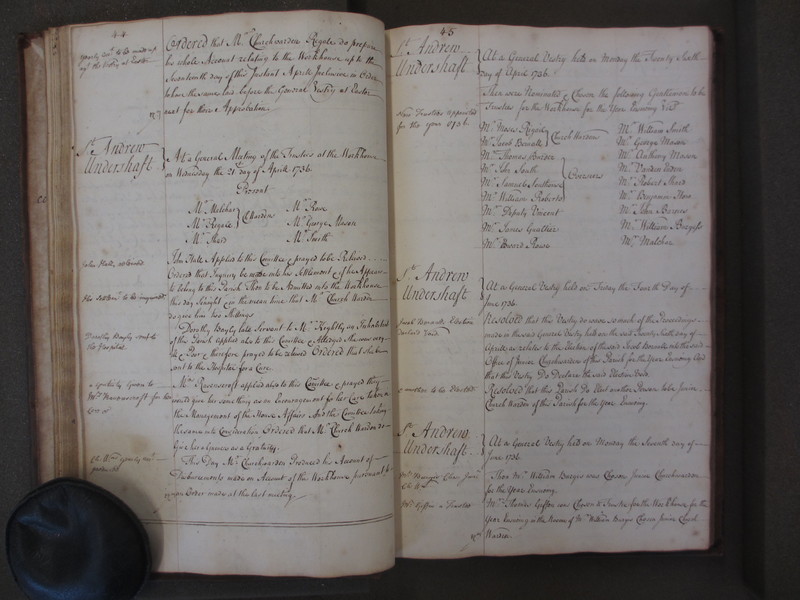 44
Ordered that Mr Churchwarden Regale do prepare
his whole Account relating to the Workhouse up to the
Seventeenth day of this Instant April Inclusive in Order
to have the same laid before the General Vestry at Easter
next for there Approbation
St Andrew
Undershaft
At a General Meeting of the Trustees at the Workhouse
on Wednesday the 21st day of April 1736
Present
Mr Melchar Mr Rowe
Mr Regale Mr George Mason
Mr Mr Smith
John Hale Applied to this Comittee & prayed to be Relieved
Ordered that Inquiry be made into his Settlement & if he Appears
to belong to this Parish Then to be Admitted into the Workhouse
this day Sennight & in the mean time that Mr Church Warden
do give him Shillings
Dorothy Bayly late Servant to Mr Keightly an Inhabitant
of this Parish applied also to this Comittee & Alledged She was very
Poor & therefore prayed to be relieved Ordered that She be
sent to the Hospital for a Cure
Dorothy Bayly sent to
the Hospital
Mrs Ravenscroft applied also to this Comittee & prayed they
would give her something as an Encouragement for her Care taken in
the Management of the House Affairs And the Comittee taking
the same into Consideration Ordered that Mr Church Warden do
give her a Guinea as a Gratuity
a gratuity given to
Mrs Ravenscroft for her
care
This Day Mr Churchwarden Produced his Account of
Disbursements made on Account of the Workhouse pursuant to
an Order made at the last meeting
45
St Andrew
Undershaft
At a General Vestry held on Monday the Twenty Sixth
day of April 1736
Then were Nominated & Chosen the following Gentlemen to be
Trustees for the Workhouse for the Year Ensuing Vizt
New Trustees appointed
for the year 1736
Mr Moses Regale Mr William Smith
Mr Jacob Bonnell Church Warden Mr George Mason
Mr Thomas Mr Anthony Mason
Mr John South Overseers Mr
Mr Samuel Mr Robert
Mr William Roberts Mr Benjamin
Mr Deputy Vincent Mr John Barnes
Mr James Mr William Burgis
Mr Rowe Mr Melchar
St Andrew
Undershaft
At a General Vestry held on Friday the Fourth Day of
June 1736
Resolved that this Vestry do reverse so much of the Proceedings
made in the said General Vestry held on the said Twenty Sixth day of
April as relates to the Election of the said Jacob Bonnell into the said
Office of Junior Churchwarden of this Parish for the Year Ensuing And
that this Vestry Do Declare the said Election Void
Jacob Bonnell Election
declared Void
Resolved that this Parish Do Elect another Person to be Junior
Church Warden of this Parish for the Year Ensuing
another to be Elected
St Andrew
Undershaft
At a General Vestry held on Monday the Seventh day of
June 1736
Then Mr William Burgis was Chosen Junior Churchwarden
for the Year Ensuing
Mr Gifton was Chosen a Trustee for the Workhouse for the
Year Ensuing in the Room of Mr William Burgis Chosen Junior Church
Warden
Mr Gifton a Trustee